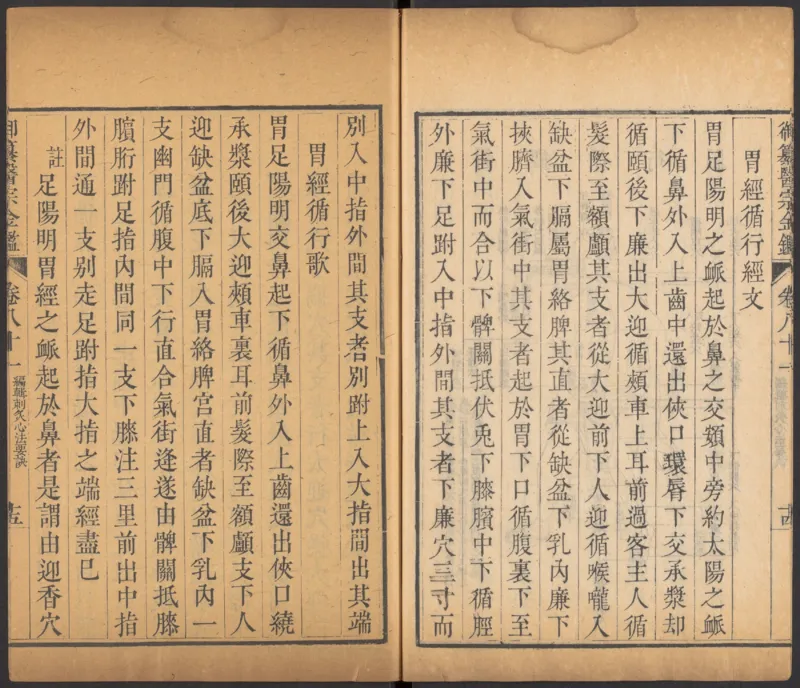 御纂醫宗金鑑 卷八十一 十四
胃經循行經文
胃足陽明之衇起於鼻之交頞中旁約太陽之衇
下循鼻外入上齒中還出俠口環脣下交承漿却
循頤後下廉出大迎循頰車上耳前過客主人循
髮際至額顱其支者從大迎前下人迎循喉嚨入
缺盆下膈屬胃絡脾其直者從缺盆下乳內廉下
挾臍入氣街中其支者起於胃下口循腹裏下至
氣街中而合以下髀關抵伏兎下膝臏中下循脛
外廉下足跗入中指外間其支者下廉穴三寸而
別入中指外間其支者別跗上入大指間出其端
胃經循行歌
胃足陽明交鼻起下循鼻外入上齒還出俠口繞
承漿頤後大迎頰車裏耳前髮際至額顱支下人
迎缺盆底下膈入胃絡脾宮直者缺盆下乳內一
支幽門循腹中下行直合氣街逢遂由髀關抵膝
臏䯒跗足指內間同一支下膝注三里前出中指
外間通一支別走足跗指大指之端經盡已
註 足陽明胃經之衇起於鼻者是謂由迎香穴
御纂醫宗金鑑 卷八十一 編輯刺灸心法要訣 十五